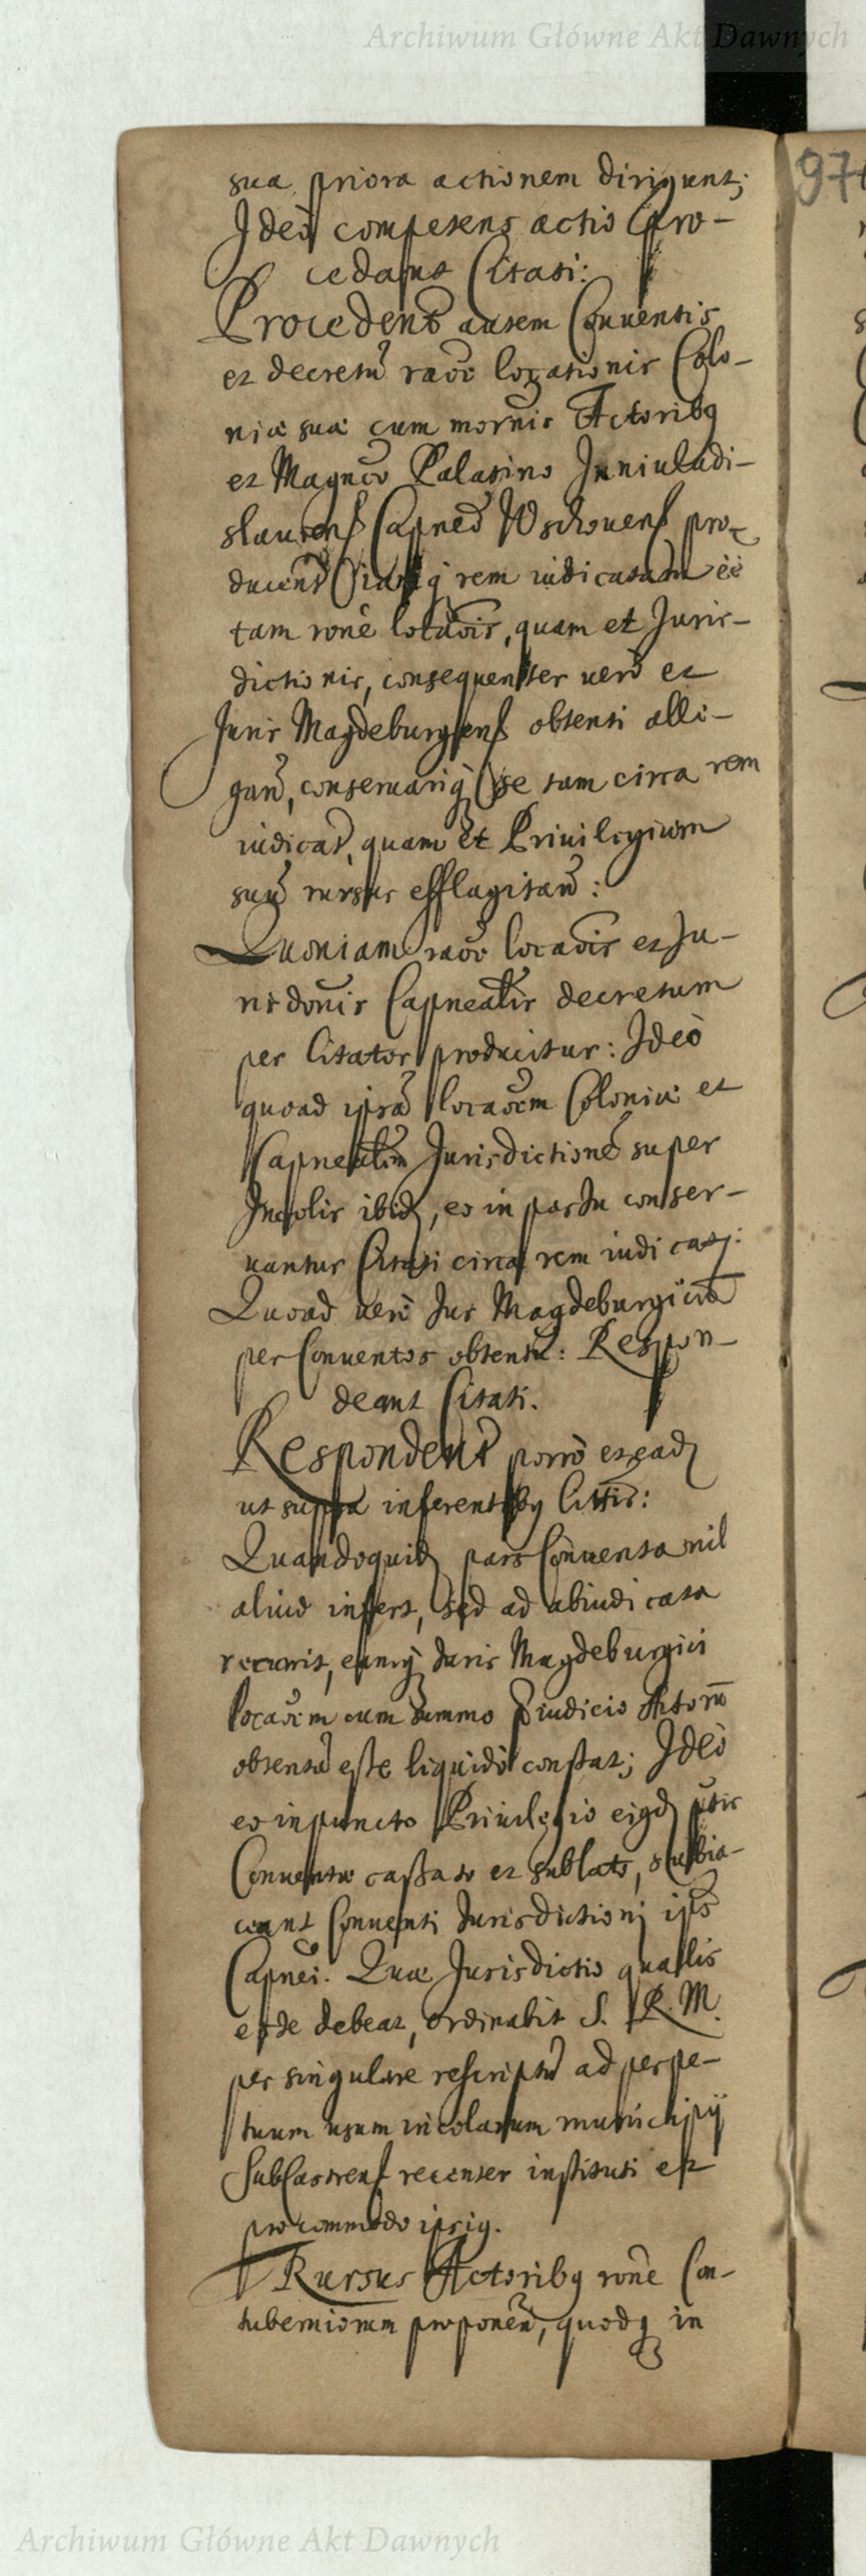 Archiwum Główne Akt Dawnych
97
sua priora actionem dirigunt;
Ideò competens actio Pro-
cedant Citati:
Procedent autem Conventis
et decretũ raõe locationis Colo-
niæ suæ cum modernis Actoribq
et Magnco Palatino Juniuladi-
slauiens Capneo Wschouens pro-
ducent iamq rem iudicatam eẽ
tam rone locãois, quam et Juris-
dictionis, consequenter verò et
Juris Magdeburgens obtenti alli-
gant, conservariq se tam circa rem
iudicat, quam et Privilegium
suũ rursus efflagitant:
Quoniam raõe locaõis et Ju-
risdonis Capnealis decretum
per Citator producitur: Ideò
quoad ipsã locaõem Coloniæ et
Capnealem Jurisdictionẽ super
Incolis ibid, eo in passu conser-
vantur Citati circa rem iudicatã:
Quoad verò Jus Magdeburgicũ
per Conventos obtentũ: Respon-
deant Citati.
Respondent porrò ex ead
ut supra inferentibq littis:
Quandoquid pars Conventa nil
aliud infert, sed ad abiudicata
recurrit, eamq Juris Magdeburgici
locaõem cum summo pjudicio Actorũ
obtentã esse liquidò constat; Ideò
eo in puncto Privilegio eiqd ptis
Conventæ cassato et sublato, subia-
ceant Conventi Jurisdictioni ips
Capnei. Quæ Jurisdictio qualis
esse debeat, ordinabit S. R. M.
per singulare rescriptũ ad perpe-
tuum usum incolarum municipij
SubCastrens recenter instituti et
pro commodo ipsiq.
Rursus Actoribq rone Con-
tuberniorum proponen, quodq in
Archiwum Główne Akt Dawnych